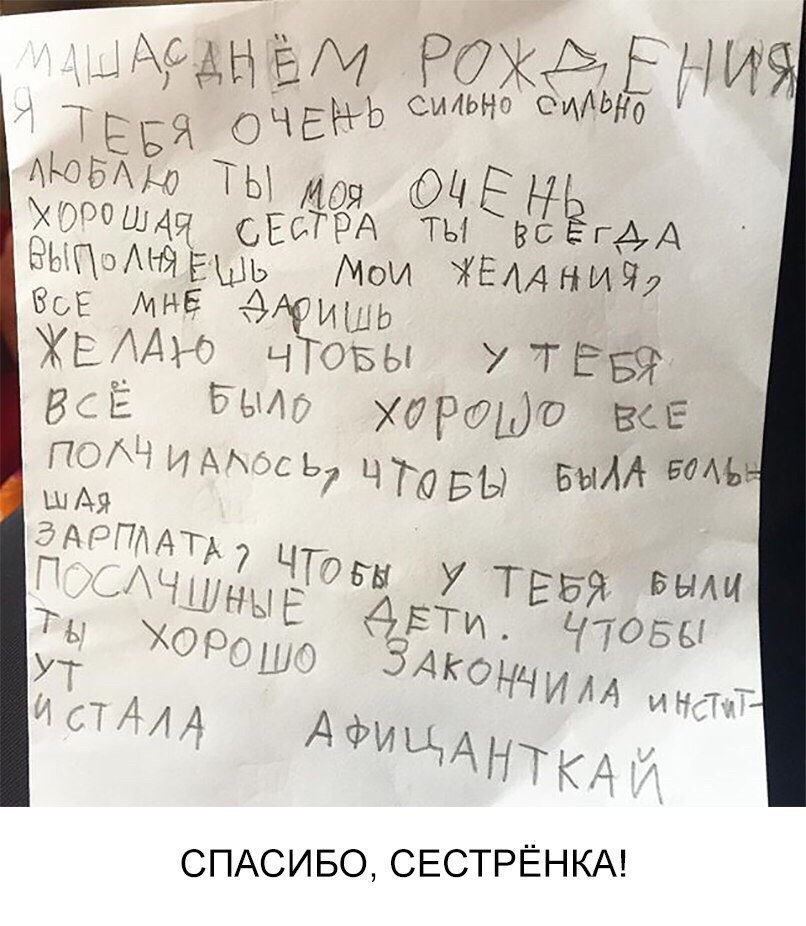 МАША, С ДНЁМ РОЖДЕНИЯ
Я ТЕБЯ ОЧЕНЬ СИЛЬНО СИЛЬНО
ЛЮБЛЮ ТЫ МОЯ ОЧЕНЬ
ХОРОШАЯ СЕСТРА ТЫ ВСЕГДА
ВЫПОЛНЯЕШЬ МОИ ЖЕЛАНИЯ,
ВСЕ МНЕ ДАРИШЬ
ЖЕЛАЮ ЧТОБЫ У ТЕБЯ
ВСЁ БЫЛО ХОРОШО ВСЕ
ПОЛЧИАЛОСЬ, ЧТОБЫ БЫЛА БОЛЬ-
ШАЯ
ЗАРПЛАТА, ЧТОБЫ У ТЕБЯ БЫЛИ
ПОСЛЧШНЫЕ ДЕТИ. ЧТОБЫ
ТЫ ХОРОШО ЗАКОНЧИЛА ИНСТИТ-
УТ
И СТАЛА АФИЦАНТКАЙ
СПАСИБО, СЕСТРЁНКА!